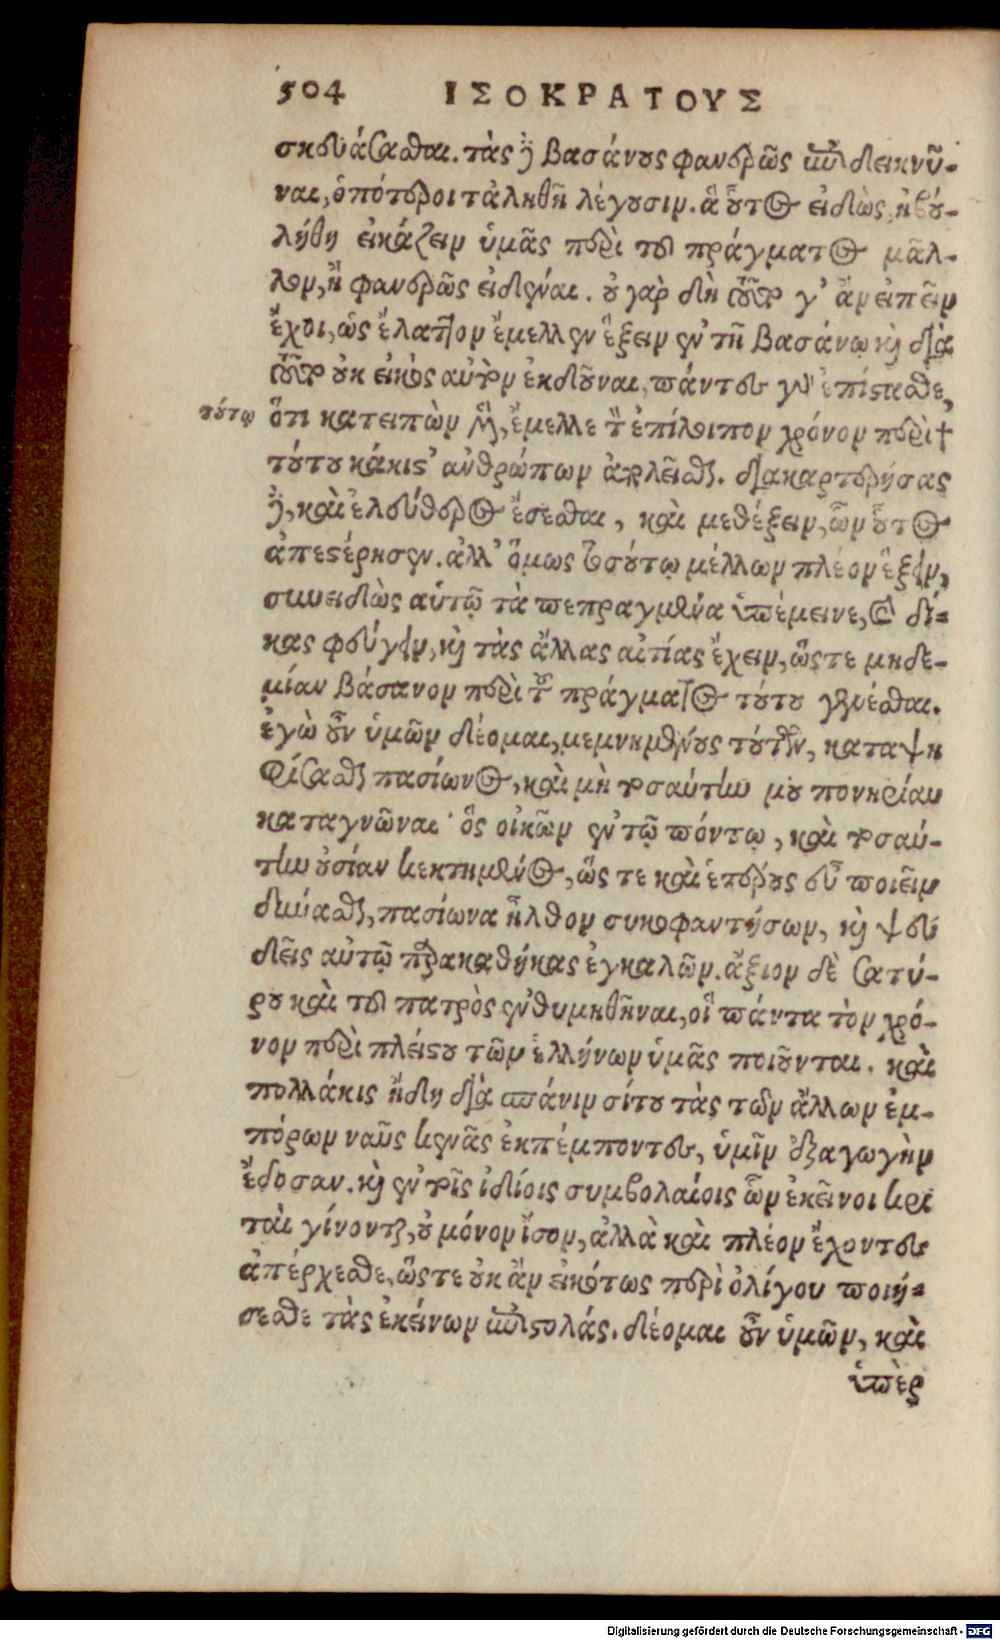 504 ΙΣΟΚΡΑΤΟΥΣ
σκευάσασθαι. τὰς δὲ βασάνους φανερῶς ἐπιδεικνύ-
ναι, ὁπότεροι τἀληθῆ λέγουσιν. ἃ οὗτος εἰδὼς, ἠβου-
λήθη εἰκάζειν ὑμᾶς περὶ τοῦ πράγματος μᾶλ-
λον, ἢ φανερῶς εἰδέναι. οὐ γὰρ δὴ τοῦτό γ' ἂν εἰπεῖν
ἔχοι, ὡς ἔλαττον ἔμελλεν ἕξειν ἐν τῇ βασάνῳ καὶ διὰ
τοῦτο οὐκ εἰκὸς αὐτὸν ἐκδοῦναι, πάντες γὰρ ἐπίστασθε,
τούτῳ
ὅτι κατειπὼν μὲν, ἔμελλε τὸν ἐπίλοιπον χρόνον περὶ †
τούτου κάκιστ' ἀνθρώπων ἀπολεῖσθαι. διακαρτερήσας
δὲ, καὶ ἐλεύθερος ἔσεσθαι, καὶ μεθέξειν, ὧν οὗτος
ἀπεστέρησεν. ἀλλ' ὅμως τοσούτῳ μέλλων πλέον ἕξειν,
συνειδὼς αὑτῷ τὰ πεπραγμένα ὑπέμεινε, καὶ δί-
κας φεύγειν, καὶ τὰς ἄλλας αἰτίας ἔχειν, ὥςτε μηδε-
μίαν βάσανον περὶ τοῦ πράγματος τούτου γενέσθαι.
ἐγὼ οὖν ὑμῶν δέομαι, μεμνημένους τούτων, καταψη
φίσασθαι πασίωνος, καὶ μὴ τοσαύτην μου πονηρίαν
καταγνῶναι· ὃς οἰκῶν ἐν τῷ πόντῳ, καὶ τοσαύ-
την οὐσίαν κεκτημένος, ὥς τε καὶ ἑτέρους εὖ ποιεῖν
δύνασθαι, πασίωνα ἦλθον συκοφαντήσων, καὶ ψευ
δεῖς αὐτῷ παρακαθήκας ἐγκαλῶν. ἄξιον δὲ σατύ-
ρου καὶ τοῦ πατρὸς ἐνθυμηθῆναι, οἳ πάντα τὸν χρό-
νον περὶ πλείστου τῶν ἑλλήνων ὑμᾶς ποιοῦνται. καὶ
πολλάκις ἤδη διὰ σπάνιν σίτου τὰς τῶν ἄλλων ἐμ-
πόρων ναῦς κενὰς ἐκπέμποντες, ὑμῖν ἐξαγωγὴν
ἔδοσαν. καὶ ἐν τοῖς ἰδίοις συμβολαίοις ὧν ἐκεῖνοι κρι
ταὶ γίνονται, οὐ μόνον ἴσον, ἀλλὰ καὶ πλέον ἔχοντες
ἀπέρχεσθε, ὥςτε οὐκ ἂν εἰκότως περὶ ὀλίγου ποιή-
σεσθε τὰς ἐκείνων ἐπιστολάς. δέομαι οὖν ὑμῶν, καὶ
ὑπὲρ
Digitalisierung gefördert durch die Deutsche Forschungsgemeinschaft - DFG